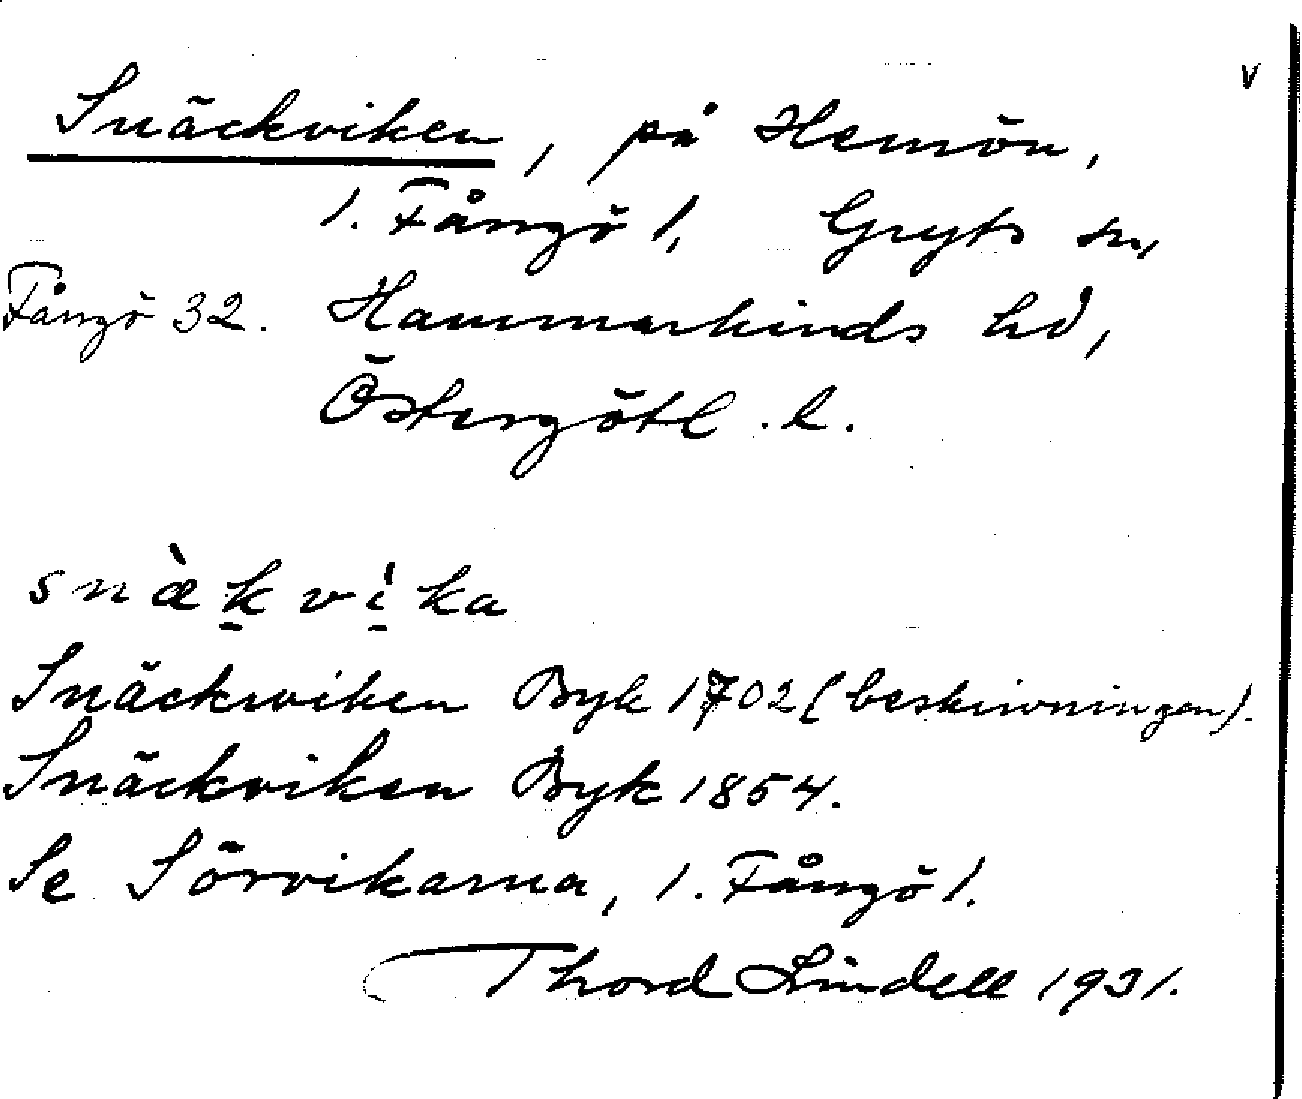 v
Snäckviken, på Hemön,
1. Fångö 1, Gryts sn,
Fångö 32. Hammarkinds hd,
Östergötl. l.
snæ̀kvìka
Snäckwiken Byk 1702 (beskrivningen).
Snäckviken Byk 1854.
Se Sörvikarna, 1. Fångö 1.
Thord Lindell 1931.